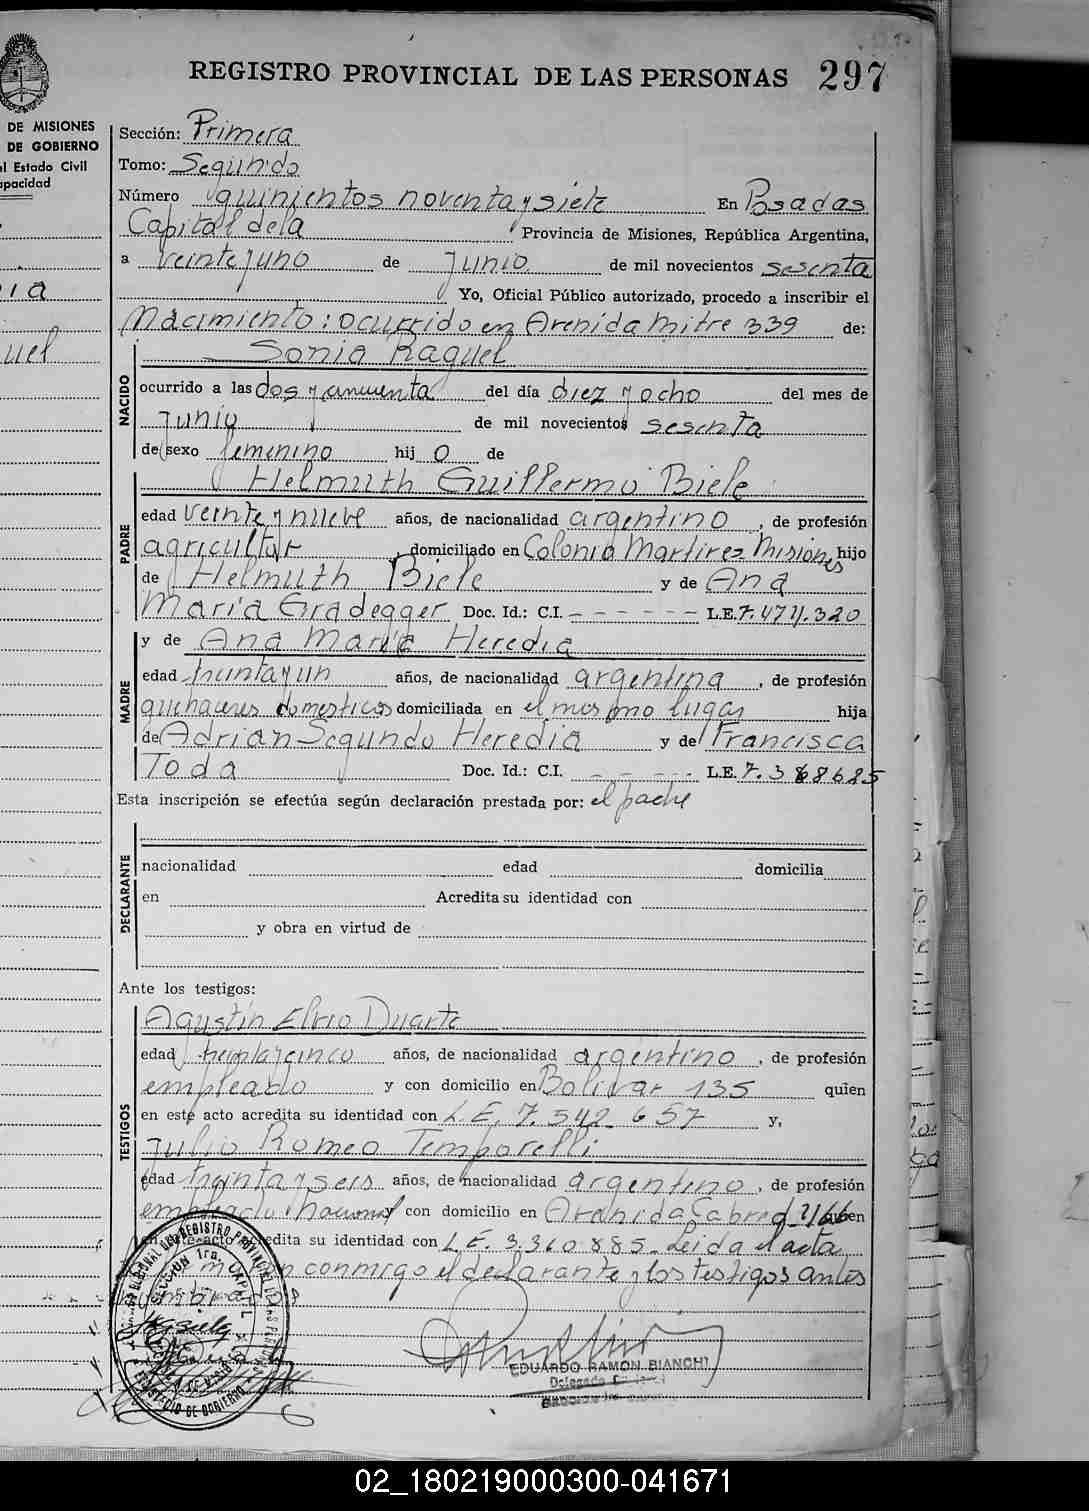 REGISTRO PROVINCIAL DE LAS PERSONAS 297
DE MISIONES
DE GOBIERNO
l Estado Civil
pacidad
Sección: Primera
Tomo: Segundo
Número quinientos noventa y siete En Posadas
Capital de la Provincia de Misiones, República Argentina,
a veinte juno de Junio de mil novecientos sesenta
Yo, Oficial Público autorizado, procedo a inscribir el
Nacimiento: ocurrido en Avenida Mitre 339 de:
Sonia Raquel
NACIDO
ocurrido a las dos y cincuenta del día diez y ocho del mes de
Junio de mil novecientos sesenta
de sexo femenino hij o de
Helmuth Guillermo Biele
PADRE
edad veinte y nueve años, de nacionalidad argentino, de profesión
agricultor domiciliado en Colonia Martirez Misiones hijo
de Helmuth Biele y de Ana
María Gradegger Doc. Id.: C.I. - - - - - - L.E. 7.474.320
y de Ana María Heredia
MADRE
edad treinta y un años, de nacionalidad argentina, de profesión
quehaceres domesticos domiciliada en el mismo lugar hija
de Adrian Segundo Heredia y de Francisca
Toda Doc. Id.: C.I. - - - - - L.E. 7.3 8685
Esta inscripción se efectúa según declaración prestada por: el padre
DECLARANTE
nacionalidad edad domicilia
en Acredita su identidad con
y obra en virtud de
Ante los testigos:
TESTIGOS
Agustín Elvio Duarte
edad treinta y cinco años, de nacionalidad argentino, de profesión
empleado y con domicilio en Bolivar 135 quien
en este acto acredita su identidad con L.E. 7.542.657 y,
Julio Romeo Temporelli
edad treinta y seis años, de nacionalidad argentino, de profesión
empleado nacional y con domicilio en Avenida Cabred 2166 quien
en este acto acredita su identidad con L.E. 3.360.885 - Leida el acta
conmigo el declarante y los testigos antes
EDUARDO RAMON BIANCHI
02_180219000300-041671